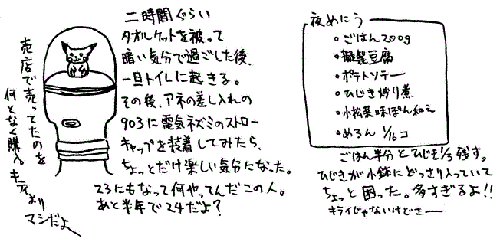 二時間ぐらい
タオルケットを被って
暗い気分で過ごした後、
一旦トイレに起きる。
その後、アネの差し入れの
903に電気ネズミのストロー
キャップを装着してみたら、
ちょっとだけ楽しい気分になった。
23にもなって何やってんだこの人。
あと半年で24だよ?
売店で売ってたのを
何となく購入
キティより
マシだよ
夜めにう
・ごはん200g
・擬製豆腐
・ポテトソテー
・ひじき炒り煮
・小松菜味ぽん和え
・めろん 1/16コ
ごはん半分とひじき1/3残す。
ひじきが小鉢にどっさり入っていて
ちょっと困った。多すぎるよ!!
キライじゃないけどさー